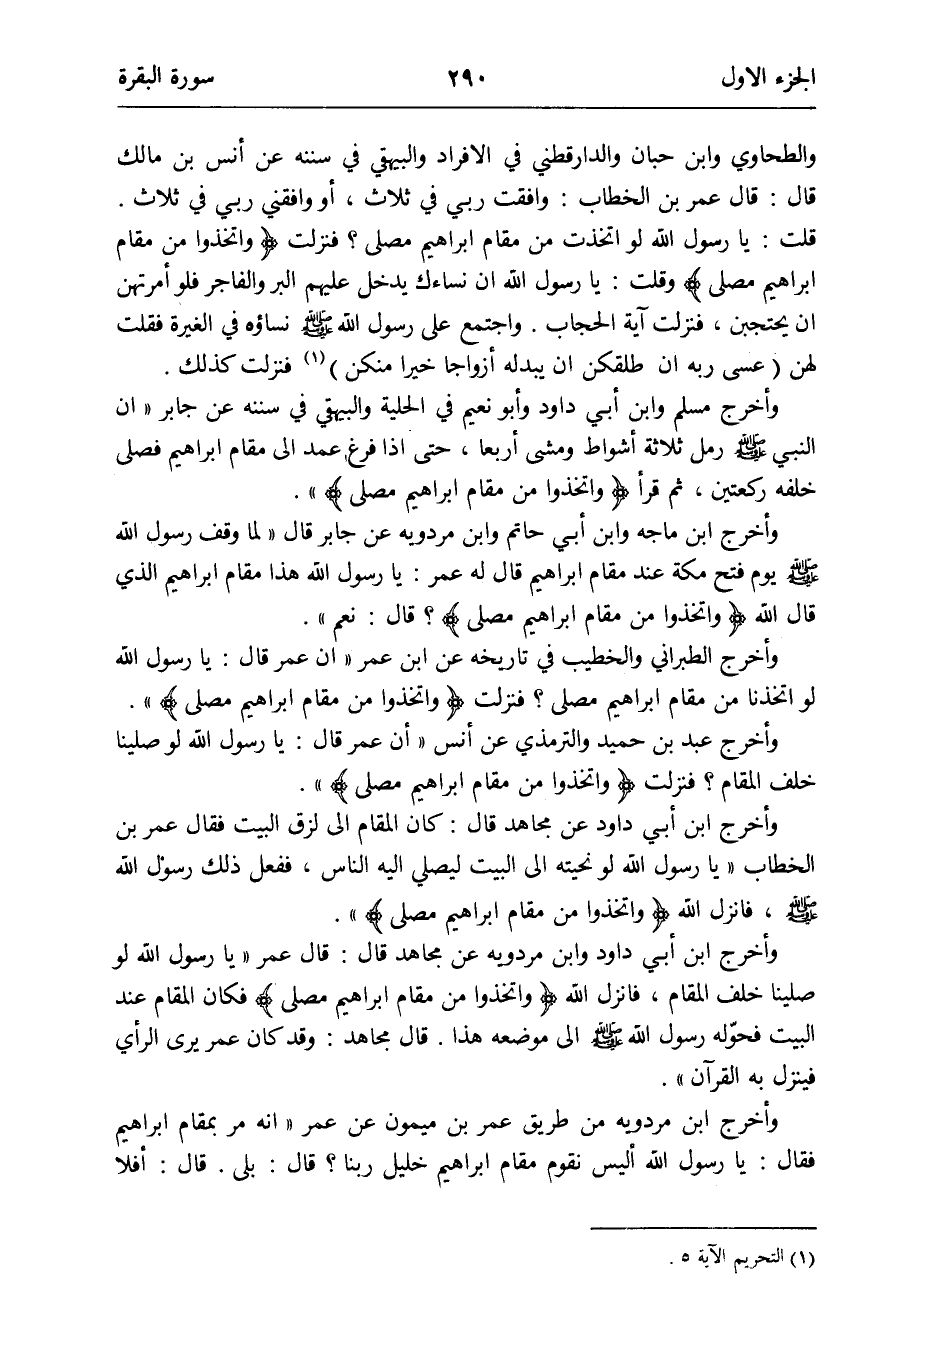 الجزء الاول ٢٩٠ سورة البقرة
والطحاوي وابن حبان والدارقطني في الافراد والبيهقي في سننه عن أنس بن مالك
قال : قال عمر بن الخطاب : وافقت ربي في ثلاث ، أو وافقني ربي في ثلاث .
قلت : يا رسول الله لو اتخذت من مقام ابراهيم مصلى ؟ فنزلت ﴿ واتخذوا من مقام
ابراهيم مصلى ﴾ وقلت : يا رسول الله ان نساءك يدخل عليهم البر والفاجر فلو أمرتهن
ان يحتجبن ، فنزلت آية الحجاب . واجتمع على رسول الله ﷺ نساؤه في الغيرة فقلت
لهن ( عسى ربه ان طلقكن ان يبدله أزواجا خيرا منكن )(١) فنزلت كذلك .
وأخرج مسلم وابن أبي داود وأبو نعيم في الحلية والبيهقي في سننه عن جابر « ان
النبي ﷺ رمل ثلاثة أشواط ومشى أربعا ، حتى اذا فرغ عمد الى مقام ابراهيم فصلى
خلفه ركعتين ، ثم قرأ ﴿ واتخذوا من مقام ابراهيم مصلى ﴾ » .
وأخرج ابن ماجه وابن أبي حاتم وابن مردويه عن جابر قال « لما وقف رسول الله
ﷺ يوم فتح مكة عند مقام ابراهيم قال له عمر : يا رسول الله هذا مقام ابراهيم الذي
قال الله ﴿ واتخذوا من مقام ابراهيم مصلى ﴾ ؟ قال : نعم » .
وأخرج الطبراني والخطيب في تاريخه عن ابن عمر « ان عمر قال : يا رسول الله
لو اتخذنا من مقام ابراهيم مصلى ؟ فنزلت ﴿ واتخذوا من مقام ابراهيم مصلى ﴾ » .
وأخرج عبد بن حميد والترمذي عن أنس « أن عمر قال : يا رسول الله لو صلينا
خلف المقام ؟ فنزلت ﴿ واتخذوا من مقام ابراهيم مصلى ﴾ » .
وأخرج ابن أبي داود عن مجاهد قال : كان المقام الى لزق البيت فقال عمر بن
الخطاب « يا رسول الله لو نحيته الى البيت ليصلي اليه الناس ، ففعل ذلك رسول الله
ﷺ ، فانزل الله ﴿ واتخذوا من مقام ابراهيم مصلى ﴾ » .
وأخرج ابن أبي داود وابن مردويه عن مجاهد قال : قال عمر « يا رسول الله لو
صلينا خلف المقام ، فانزل الله ﴿ واتخذوا من مقام ابراهيم مصلى ﴾ فكان المقام عند
البيت فحوّله رسول الله ﷺ الى موضعه هذا . قال مجاهد : وقد كان عمر يرى الرأي
فينزل به القرآن » .
وأخرج ابن مردويه من طريق عمر بن ميمون عن عمر « انه مر بمقام ابراهيم
فقال : يا رسول الله أليس نقوم مقام ابراهيم خليل ربنا ؟ قال : بلى . قال : أفلا
(١) التحريم الآية ٥ .